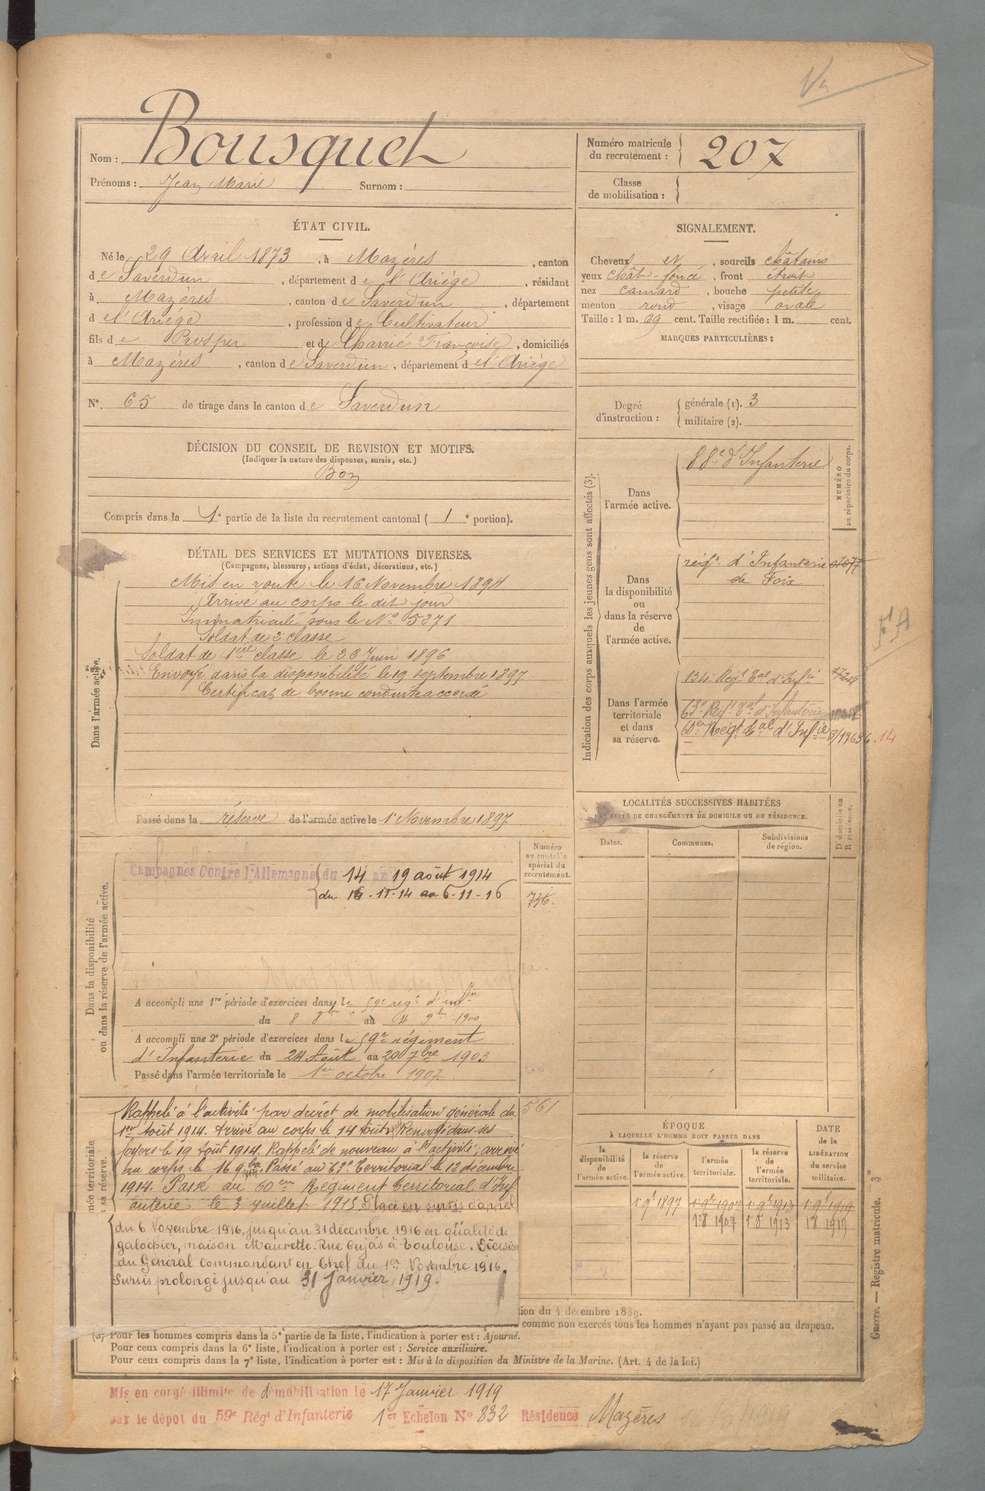 Nom : Bousquet
Prénoms : Jean Marie Surnom :
Numéro matricule du recrutement : 207
Classe de mobilisation :
ÉTAT CIVIL.
Né le 29 Avril 1873, à Mazères, canton
de Saverdun, département de l'Ariège, résidant
à Mazères, canton de Saverdun, département
de l'Ariège, profession de Cultivateur
fils de Prosper et de Charrié Françoise, domiciliés
à Mazères, canton de Saverdun, département de l'Ariège
N° 65 de tirage dans le canton de Saverdun
SIGNALEMENT.
Cheveux et, sourcils châtains
yeux chât-foncé, front étroit
nez camard, bouche petite
menton rond, visage ovale
Taille : 1 m. 69 cent. Taille rectifiée : 1 m. cent.
MARQUES PARTICULIÈRES :
Degré d'instruction : générale (1). 3
militaire (2).
DÉCISION DU CONSEIL DE REVISION ET MOTIFS.
(Indiquer la nature des dispenses, sursis, etc.)
Bon
Compris dans la 1e partie de la liste du recrutement cantonal (1e portion).
DÉTAIL DES SERVICES ET MUTATIONS DIVERSES.
(Campagnes, blessures, actions d'éclat, décorations, etc.)
Dans l'armée active.
Mis en route le 16 Novembre 1894
Arrivé au corps le dit jour
Immatriculé sous le No 5271
Soldat de 2 classe
Soldat de 1ère classe le 28 Juin 1896
Envoyé dans la disponibilité le 19 septembre 1897
Certificat de bonne conduite accordé
Passé dans la réserve de l'armée active le 1er Novembre 1897
Indication des corps auxquels les jeunes gens sont affectés (3).
NUMÉRO au répertoire du corps.
Dans l'armée active.
88e d'Infanterie
Dans la disponibilité ou dans la réserve de l'armée active.
régt. d'Infanterie
de Foix
Dans l'armée territoriale et dans sa réserve.
134 Régt Tal d'Infie
63e Régt Tal d'Infanterie
60e Régt Tal d'Infie
LOCALITÉS SUCCESSIVES HABITÉES
PAR SUITE DE CHANGEMENTS DE DOMICILE OU DE RÉSIDENCE.
Dates. Communes. Subdivisions de région.
Dans la disponibilité ou dans la réserve de l'armée active.
Numéro au contrôle spécial du recrutement.
736.
Campagnes Contre l'Allemagne du 14 au 19 août 1914
du 16-11-14 au 6-11-16
A accompli une 1re période d'exercices dans le 59e régt d'infie
A accompli une 2e période d'exercices dans le 59e régiment
d'Infanterie du 24 Août au 20 7bre 1903
Passé dans l'armée territoriale le 1er octobre 1907
561
Rappelé à l'activité par décret de mobilisation générale du
1er Août 1914. Arrivé au corps le 14 août. Renvoyé dans ses
foyers le 19 Août 1914. Rappelé de nouveau à l'activité, arrivé
au corps le 16 9bre. Passé au 63e Territorial le 12 décembre
1914. Passé au 60em Régiment territorial d'Inf
anterie le 3 juillet 1915 Placé en sursis d'appel
du 6 Novembre 1916, jusqu'au 31 décembre 1916 en qualité de
galochier, maison Maurette. Rue Cujas à Toulouse. Décision
du Général commandant en Chef du 1er Novembre 1916.
Sursis prolongé jusqu'au 31 Janvier 1919.
ÉPOQUE
À LAQUELLE L'HOMME DOIT PASSER DANS
la disponibilité de l'armée active.
la réserve de l'armée active.
l'armée territoriale.
la réserve de l'armée territoriale.
DATE de la LIBÉRATION du service militaire.
1 9bre 1897 1 9bre 1907 1 9bre 1913 1 9bre 1919
1 8 1907 1 8 1913 1 8 1919
tion du 4 décembre 1889.
comme non exercés tous les hommes n'ayant pas passé au drapeau.
(3) Pour les hommes compris dans la 5e partie de la liste, l'indication à porter est : Ajourné.
Pour ceux compris dans la 6e liste, l'indication à porter est : Service auxiliaire.
Pour ceux compris dans la 7e liste, l'indication à porter est : Mis à la disposition du Ministre de la Marine. (Art. 4 de la loi.)
Guerre. — Registre matricule.
Mis en congé illimité de démobilisation le 17 Janvier 1919
par le dépôt du 59e Régt d'Infanterie 1er Echelon No 832 Résidence Mazères